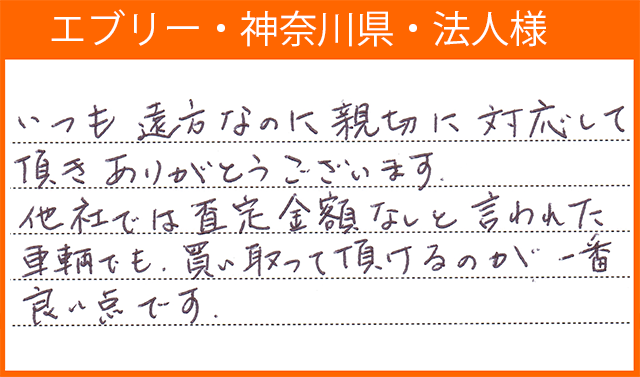 エブリー・神奈川県・法人様
いつも遠方なのに親切に対応して
頂きありがとうございます.
他社では査定金額なしと言われた
車輌でも.買い取って頂けるのが一番
良い点です.